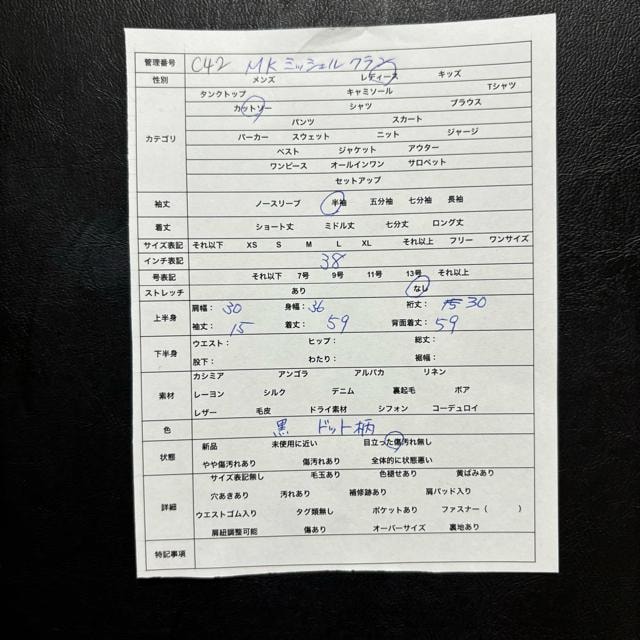 管理番号 C42 MKミッシェルクラン
性別 メンズ レディース キッズ
カテゴリ
タンクトップ キャミソール Tシャツ
カットソー シャツ ブラウス
パンツ スカート
パーカー スウェット ニット ジャージ
ベスト ジャケット アウター
ワンピース オールインワン サロペット
セットアップ
袖丈 ノースリーブ 半袖 五分袖 七分袖 長袖
着丈 ショート丈 ミドル丈 七分丈 ロング丈
サイズ表記 それ以下 XS S M L XL それ以上 フリー ワンサイズ
インチ表記 38
号表記 それ以下 7号 9号 11号 13号 それ以上
ストレッチ あり なし
上半身
肩幅: 30 身幅: 36 裄丈: 15 30
袖丈: 15 着丈: 59 背面着丈: 59
下半身
ウエスト: ヒップ: 総丈:
股下: わたり: 裾幅:
素材
カシミア アンゴラ アルパカ リネン
レーヨン シルク デニム 裏起毛 ボア
レザー 毛皮 ドライ素材 シフォン コーデュロイ
色 黒 ドット柄
状態
新品 未使用に近い 目立った傷汚れ無し
やや傷汚れあり 傷汚れあり 全体的に状態悪い
詳細
サイズ表記無し 毛玉あり 色褪せあり 黄ばみあり
穴あきあり 汚れあり 補修跡あり 肩パッド入り
ウエストゴム入り タグ類無し ポケットあり ファスナー( )
肩紐調整可能 傷あり オーバーサイズ 裏地あり
特記事項